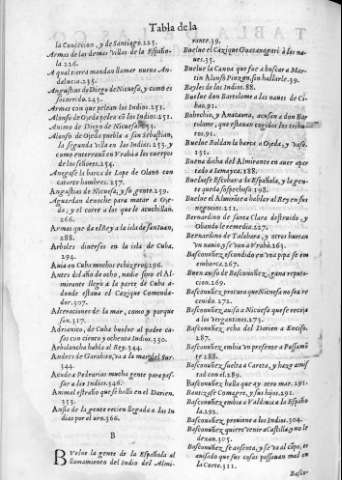 Tabla de la
la Conuersion, y de Santiago. 225.
Armas de las demas Villas de la Española. 226.
A qual tierra mandan llamar nueua Andaluzia. 235.
Angustias de Diego de Nicuesa, y como es socorrido. 245.
Armas con que pelean los Indios. 251.
Alonso de Ojeda pelea cõ los Indios. 251.
Animo de Diego de Nicuesa.
Alonso de Ojeda puebla a San Sebastian,
la segunda villa en los Indias. 253. y
como entierran en Vraba los cuerpos
de los señores. 254.
Anegase la barca de Lope de Olano con
catorze hombres. 257.
Angustias de Nicuesa, y su gente. 259.
Aguardan de noche para matar a Ojeda,
y el correr a los que le acuchillan.
266.
Armas que da el Rey a la isla de san Iuan,
288.
Arboles diuersos en la isla de Cuba.
294.
Auia en Cuba muchos
Antes del año de ocho, nadie sino el Almirante
llegò a la parte de Cuba a
donde estaua el Cazique Comendador.
307.
Alteraciones de la mar, como y porque
son. 317.
Adriànico, de Cuba huelue al padre casas
con ciento y ochenta Indios. 330.
Arbolancha habla al Rey. 344.
Andres de Garabito, va a la mar del Sur.
344.
Acude a Pedrarias mucha gente para passar
a las Indias. 346.
Animal estraño que se halla en el Darien.
353.
Ansia de la gente recien llegada a las Indias
por el oro. 366.
B
BVelue la gente de la Española al
llamamiento del Indio del Almirante.
39.
Buelue el Cazique Guacanagari à las naues.
35.
Buelue la Canoa que fue a buscar a Martin
Alonso Pinzon, sin hallarle. 39.
Bayles de los Indios. 88.
Buelue don Bartolome a las naues de Cibao.
91.
Babechio, y Anacaona, acusan a don Bartolome,
que estauan cogidos los tributos.
91.
Buelue Roldan la barca a Ojeda, y
131.
Buena dicha del Almirante en auer aportado
a Iamayca. 188.
Buelue Escobar a la Española, y la gente
queda sospechosa. 198.
Buelue el Almirante a hablar al Rey en sus
negocios. 211.
Bernardino de Santa Clara destruido, y
Obando le remedia. 227.
Bernardino de Talabera, y otros hurtan
vn nauio, y se van a Vraba. 263.
Basconuñez escondido en vna pipa se embarca.
267.
Buen auiso de Basconuñez, gana reputacion.
269.
Basconuñez procura que Nicuesa no sea recebido.
272.
Basconuñez auisa a Nicuesa que se retire
a los vergantines. 273.
Basconuñez, echa del Darien a Enciso.
287.
Basconuñez embia vn presente a Passamonte.
288.
Basconuñez suelta a Careta, y haze amistad
con el. 289.
Basconuñez halla que ay otro mar. 291.
Bautizase Comagre, y sus hijos. 291.
Basconuñez embia a Valdiuia a la Española.
292.
Basconuñez procura, y sus Indios. 304.
Basconuñez quiere venir a Castilla y no le
dexan. 305.
Basconuñez se ausenta, y se va al campo,
auisado que sus cosas passauan mal en
la Corte. 311.
Bascu-